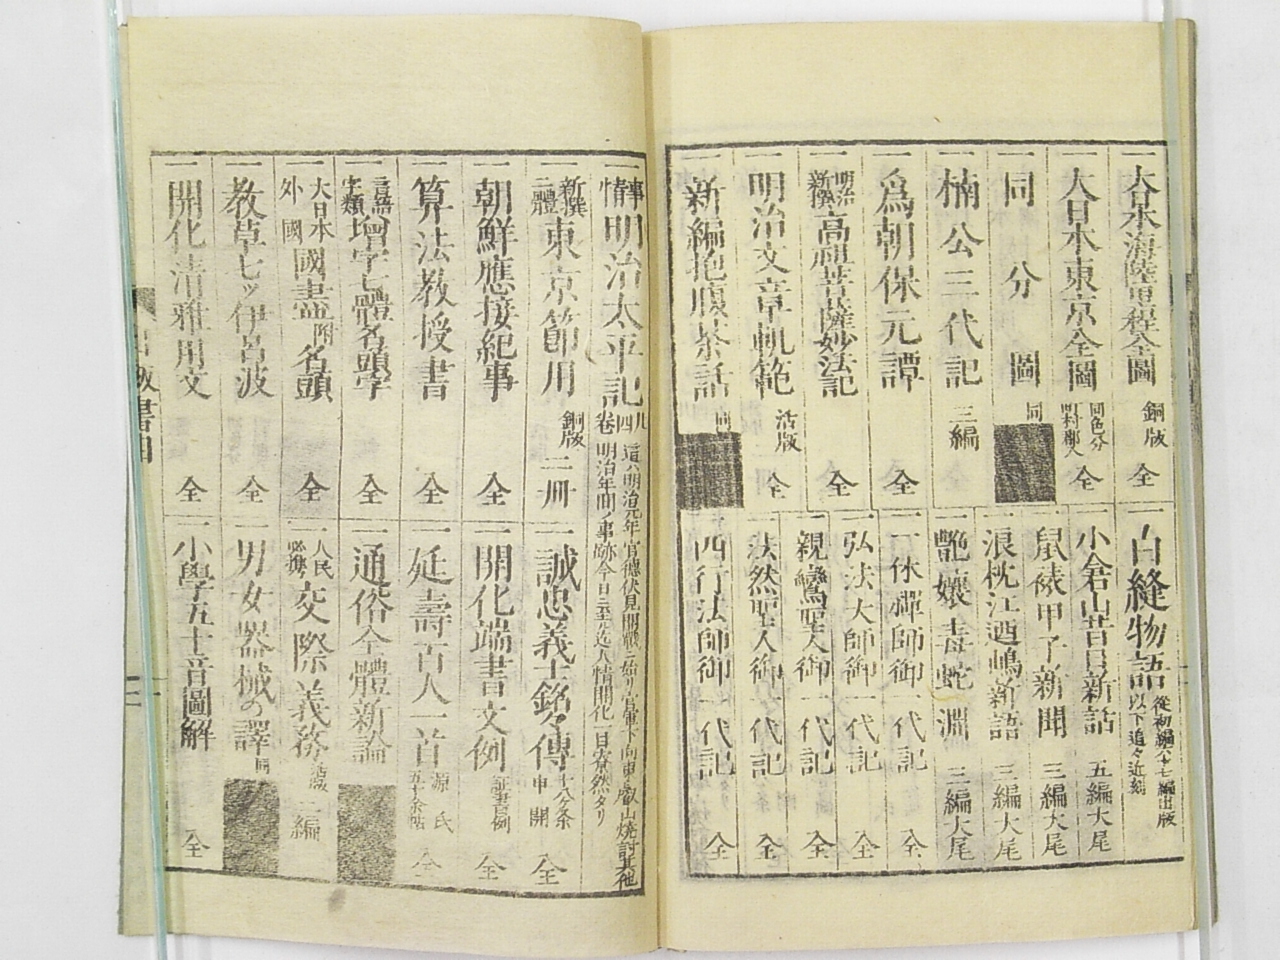 大日本海陸里程全圖 銅版 全
大日本東京全圖 同色分 町村郡入 全
同分圖 同
楠公三代記 三編
爲朝保元譚 全
明治新撰 高祖菩薩妙法記 全
明治文章軌範 活版 全
新編抱腹茶話 同
白縫物語 從初編六十七編出版 以下追々近刻
小倉山昔日新話 五編大尾
鼠䘱甲子新聞 三編大尾
浪枕江迺嶋新語 三編大尾
艶孃毒蛇淵 三編大尾
一休禪師御一代記 全
弘法大師御一代記 全
親鸞聖人御一代記 全
法然聖人御一代記 全
西行法師御一代記 全
事情 明治太平記 四卷
這ハ明治元年官德伏見開戰ニ始リ官軍下向東叡山燒討其他
明治年間ノ事跡今日ニ至ル迄人情開化一目瞭然タリ
新撰二體 東京節用 銅版 二册
朝鮮應接紀事 全
算法教授書 全
言語字類 增字七體名頭字 全
大日本外國 國盡附名頭 全
教草七ッ伊呂波 全
開化清雅用文 全
誠忠義士銘々傳 十八ケ条申開 全
開化端書文例 証書百例 全
延壽百人一首 源氏五十余帖 全
通俗全體新論
人民必携 交際義務 活版 二編
男女器械の譯 同
小學五十音圖解 全